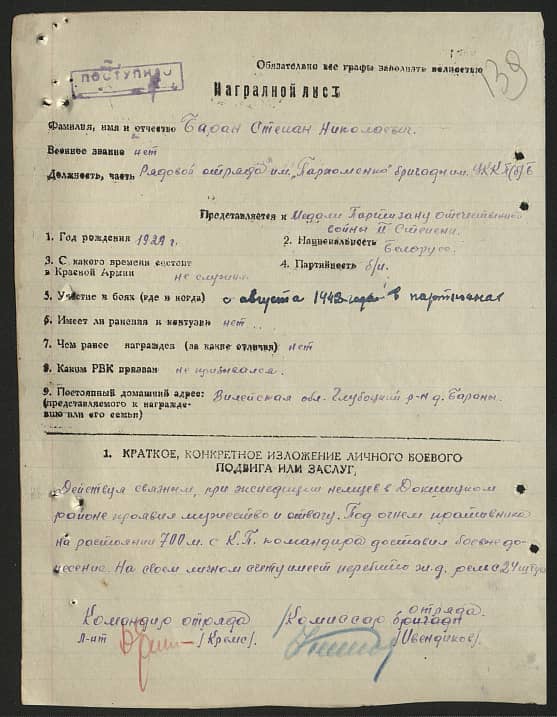 Обязательно все графы заполнять полностью
139
ПОСТУПИЛО
Наградной лист
Фамилия, имя и отчество Баран Степан Николаевич.
Военное звание нет
Должность, часть Рядовой отряда им. "Пархоменко" бригады им. ЦК КП(б)Б
Представляется к Медали Партизану отечественной
войны II Степени.
1. Год рождения 1929 г.
2. Национальность Белорус.
3. С какого времени состоит
в Красной Армии не служил
4. Партийность б/п.
5. Участие в боях (где и когда) с августа 1943 года в партизанах
6. Имеет ли ранения и контузии нет.
7. Чем ранее награжден (за какие отличия) нет
8. Каким РВК призван не призывался.
9. Постоянный домашний адрес: Вилейская обл. Глубоцкий р-н д. Бараны.
(представляемого к награжде-
нию или его семьи)
1. КРАТКОЕ, КОНКРЕТНОЕ ИЗЛОЖЕНИЕ ЛИЧНОГО БОЕВОГО
ПОДВИГА ИЛИ ЗАСЛУГ.
Действуя связным, при экспедиции немцев в Докшицком
районе проявил мужество и отвагу. Под огнем противника
на растоянии 700 м. с К.П. командира доставил боевое до-
несение. На своем личном счету имеет перебитых ж.д. рельс 24 штуки
Командир отряда
Л-нт
Комиссар отряда
бригады